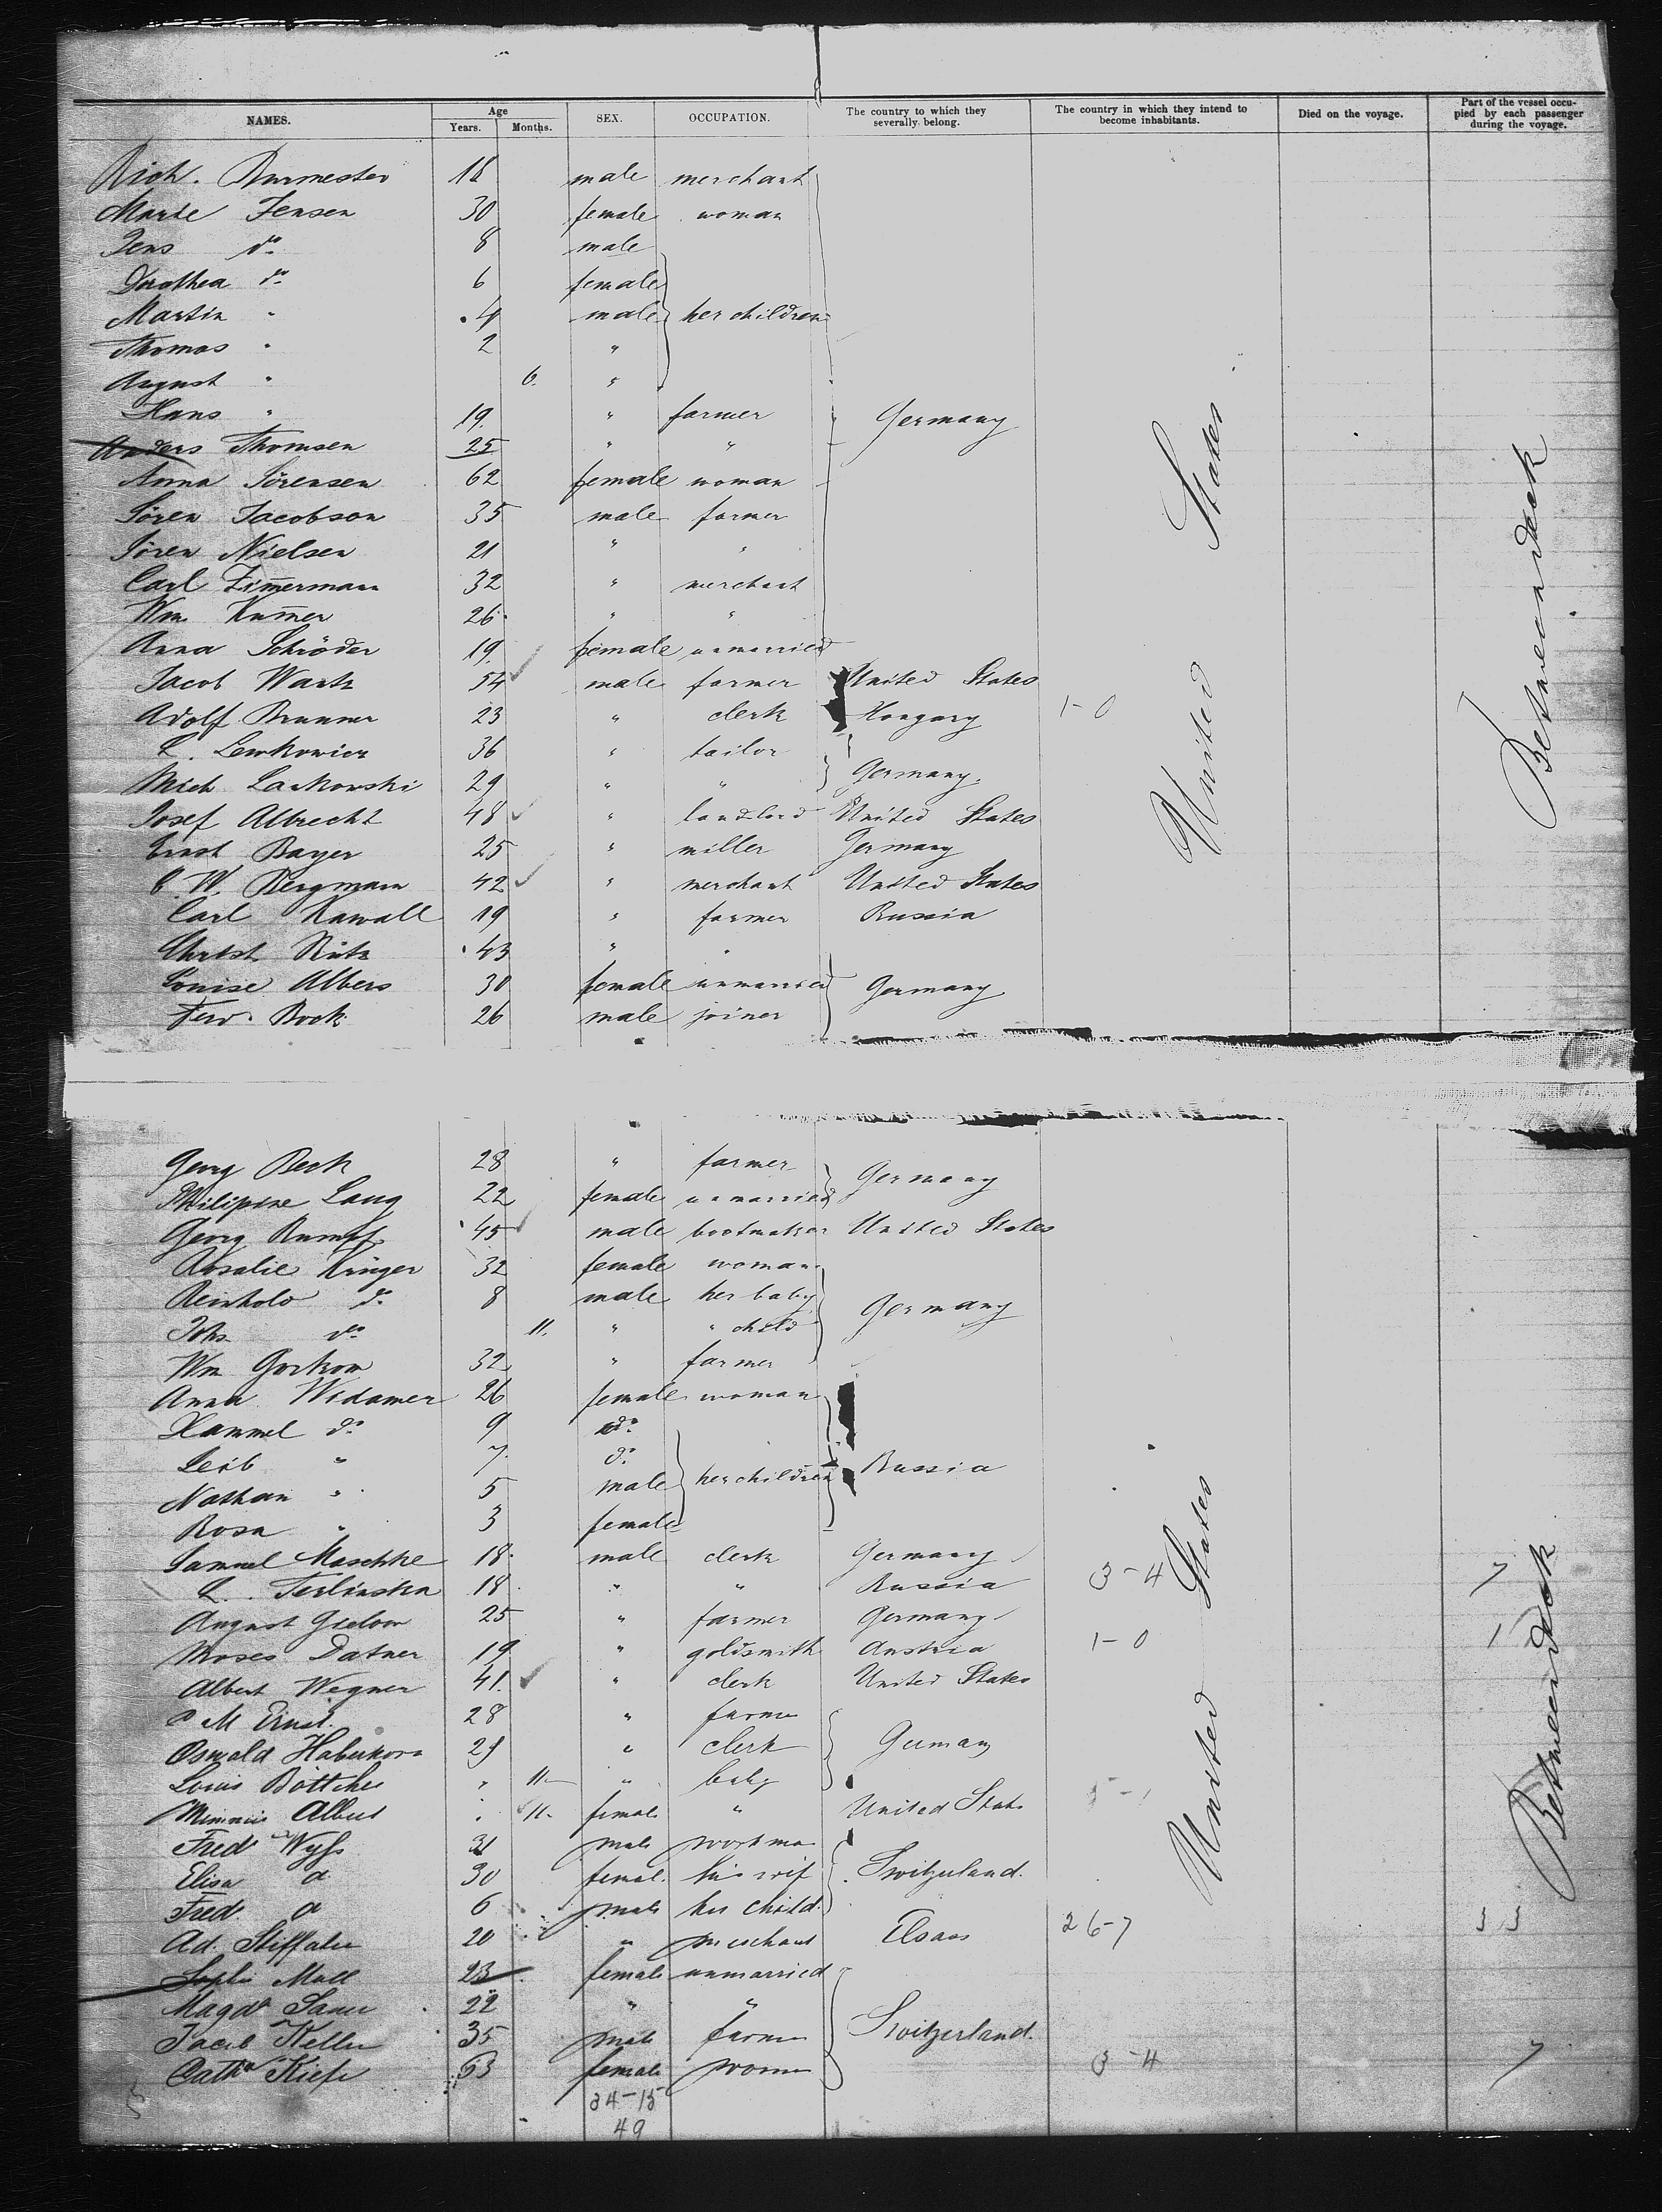 NAMES. Age Years. Months. SEX. OCCUPATION. The country to which they severally belong. The country in which they intend to become inhabitants. Died on the voyage. Part of the vessel occupied by each passenger during the voyage.
Rich. Burmester 18 male merchant
Marie Jensen 30 female woman
Jens do 8 male
Dorothea do 6 female
Martin " 4 male her children
Thomas " 2 "
August " 6. "
Hans " 19. " farmer Germany
Anders Thomsen 25 " "
Anna Sörensen 62 female woman
Sören Jacobson 35 male farmer
Sören Nielsen 21 " "
Carl Zim̄erman 32 " merchant
Wm. Kum̄er 26 " "
Anna Schröder 19. female unmarried
Jacob Wartz 54 male farmer United States
Adolf Brunner 23 " clerk Hongary 1-0
L. Lewkowicz 36 " tailor
Mich Laskowski 29 " " Germany.
Josef Albrecht 48 " landlord United States
Ernst Bayer 25 " miller Germany
C. W. Bergmann 42 " merchant United States
Carl Kawall 19 " farmer Russia
Christ Rütz 43 " "
Louise Albers 30 female unmarried Germany
Ferd. Bock 26 male joiner
United States
Between deck
Georg Beck 28 " farmer Germany
Philipine Lang 22 female unmarried
Georg Rumpf 45 male bootmaker United States
Rosalie Krüger 32 female woman
Reinhold do 8 male her baby Germany
Johs do 11. " " child
Wm Gorkow 32 " farmer
Anna Widamer 26 female woman
Hammel do 9 do
Leib " 7. do
Nathan " 5 male her children Russia
Rosa " 3 female
Samuel Maschke 18. male clerk Germany
L. Terlinska 18. " " Russia 3-4 7
August Gielow 25 " farmer Germany
Moses Datner 19 " goldsmith Austria 1-0 1
Albert Wegner 41. " clerk United States
M Ernst. 28 " farmer
Oswald Haberkorn 29 " clerk Germany
Louis Böttcher " 11 " baby
Minnie Albert " 11. female " United States
Fred Wyss 31 male workman
Elisa do 30 female his wife Switzerland.
Fred. do 6 male her child.
Ad. Stiffater 20 " merchant Elsass 26-7 33
Sophie Moll 23 female unmarried
Magd Sauer 22 " "
Jacob Keller 35 male farmer Switzerland.
Catha Kiefe 53 female woman 3-4 7
34-15
49
United States
Between deck